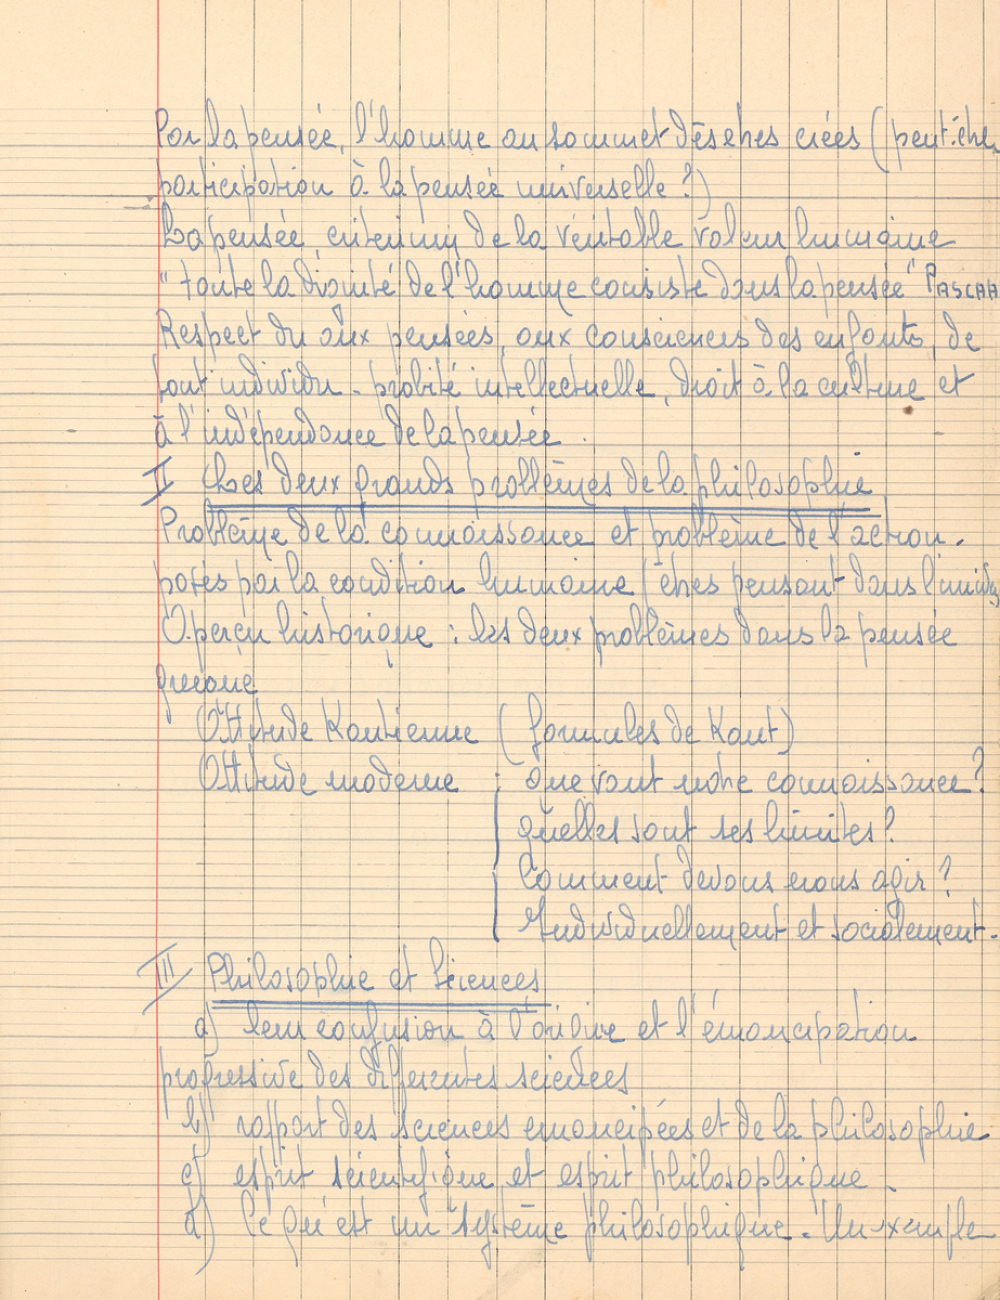 Par la pensée, l'homme au sommet des êtres créés (peut-être
participation à la pensée universelle ?)
La pensée, critérium de la véritable valeur humaine
"toute la dignité de l'homme consiste dans la pensée" PASCAL
Respect du aux pensées, aux consciences des enfants, de
tout individu - probité intellectuelle, droit à la culture et
à l'indépendance de la pensée.
II Les deux grands problèmes de la philosophie
Problème de la connaissance et problème de l'action.
posés par la condition humaine (êtres pensant dans
Aperçu historique : les deux problèmes dans la pensée
grecque
Attitude Kantienne (formules de Kant)
Attitude moderne : que vaut notre connaissance ?
quelles sont ses limites ?
Comment devons nous agir ?
Individuellement et socialement.
III Philosophie et Sciences
a) leur confusion à l'origine et l'émancipation
progressive des différentes sciences
b) rapport des sciences émancipées et de la philosophie
c) esprit scientifique et esprit philosophique.
d) Ce qu'est un système philosophique. Un exemple